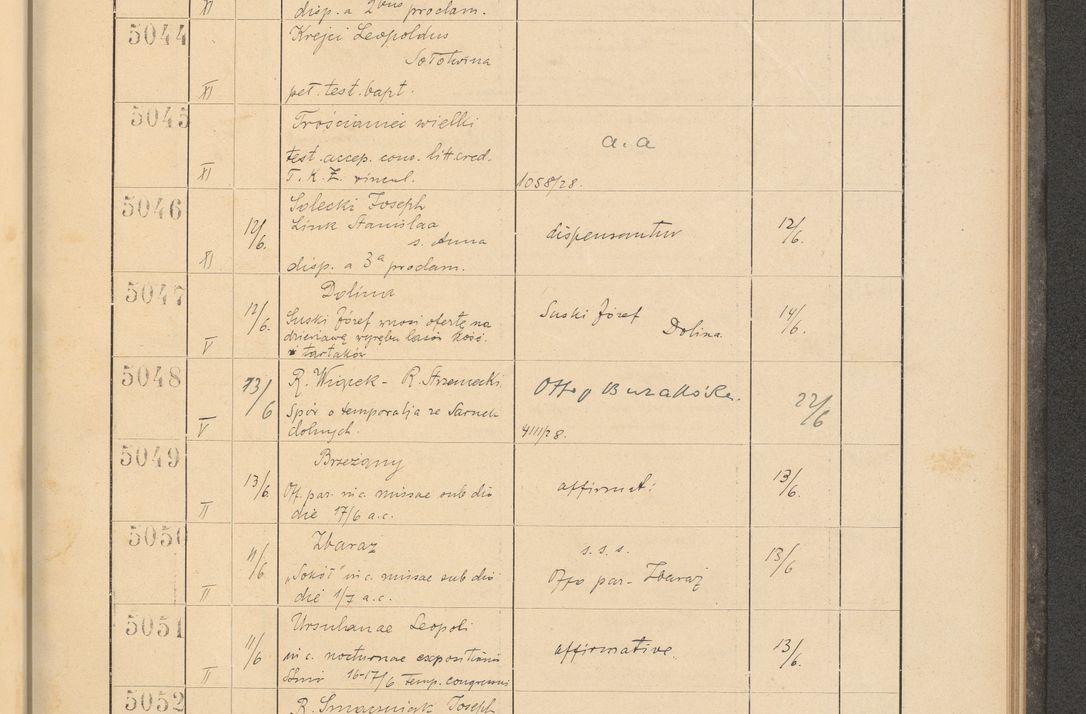 XI disp. a 2bus proclam.
5044 Krejci Leopoldus
Sołotwina
XI pet. test. bapt.
5045 Trościaniec wielki
a. a
test. accep. cons. litt. cred.
XI T. K. Z. vincul. 1058/28.
5046 Solecki Joseph
12/6. Link Stanislaa dispensantur 12/6.
s. Anna
XI disp. a 3a proclam.
5047 Dolina
12/6. Suski Józef wnosi ofertę na Suski Józef 14/6.
dzierżawę wyrębu lasów kość. Dolina
V i tartaków
5048 13/6 R. Wiącek - R. Strzemecki 22/6
Spór o temporalja ze Sarnek
V dolnych. 4111/28.
5049 Brzeżany
13/6. Off. par. in c. missae sub dio affirmat: 13/6.
II die 17/6 a.c.
5050 Zbaraż s. s. s. 13/6
11/6 "Sokół" in c. missae sub dio Offo par. Zbaraż
II die 1/7 a.c.
5051 Ursulanae Leopoli
11/6 in c. nocturnae expositionis affirmative. 13/6.
II SSmi 16-17/6 temp. congressus
5052 R. Joseph